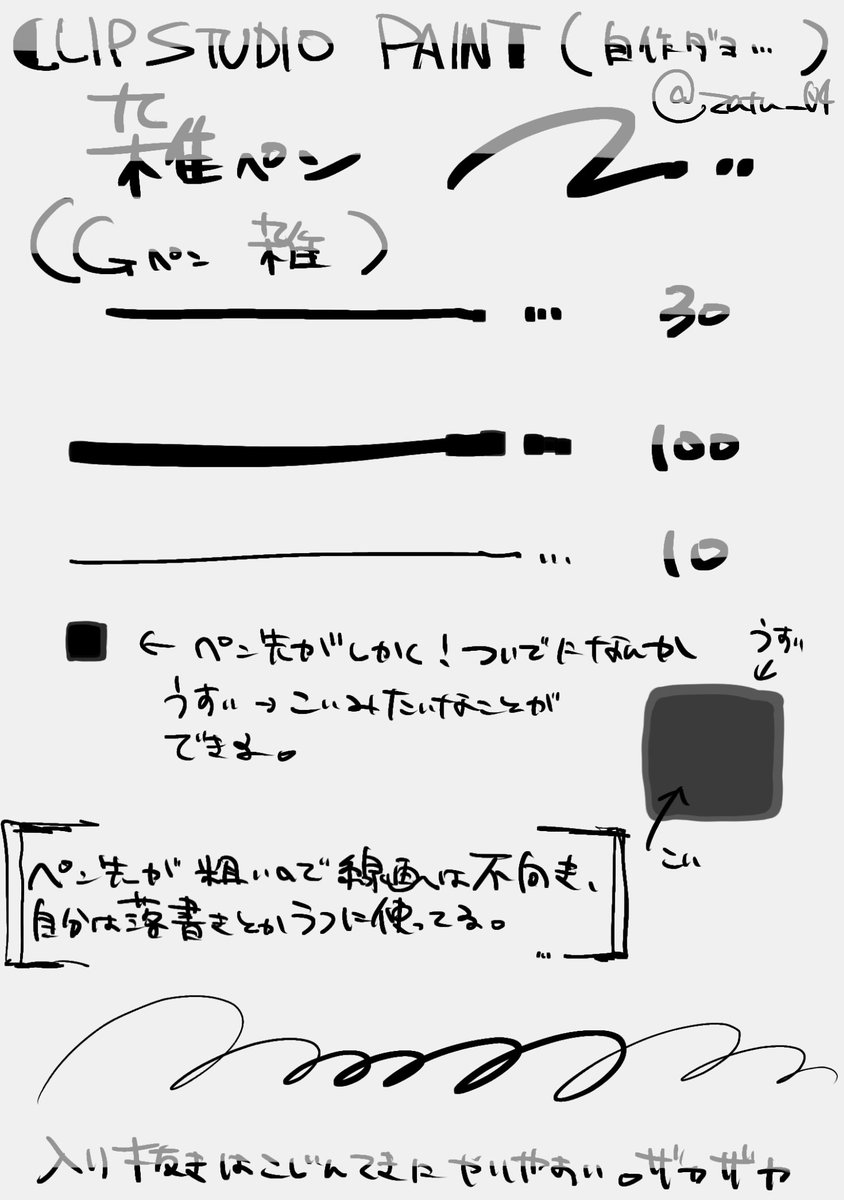 CLIP STUDIO PAINT (自作ダヨ…)
@zatu_04
雑ペン
(Gペン 雑)
30
100
10
← ペン先がしかく!ついでになんか
うすい→こいみたいなことが
できる。
うすい
こい
ペン先が粗いので線画には不向き、
自分は落書きとかラフに使ってる。
入り抜きはこじんてきにやりやすい。ザカザカ